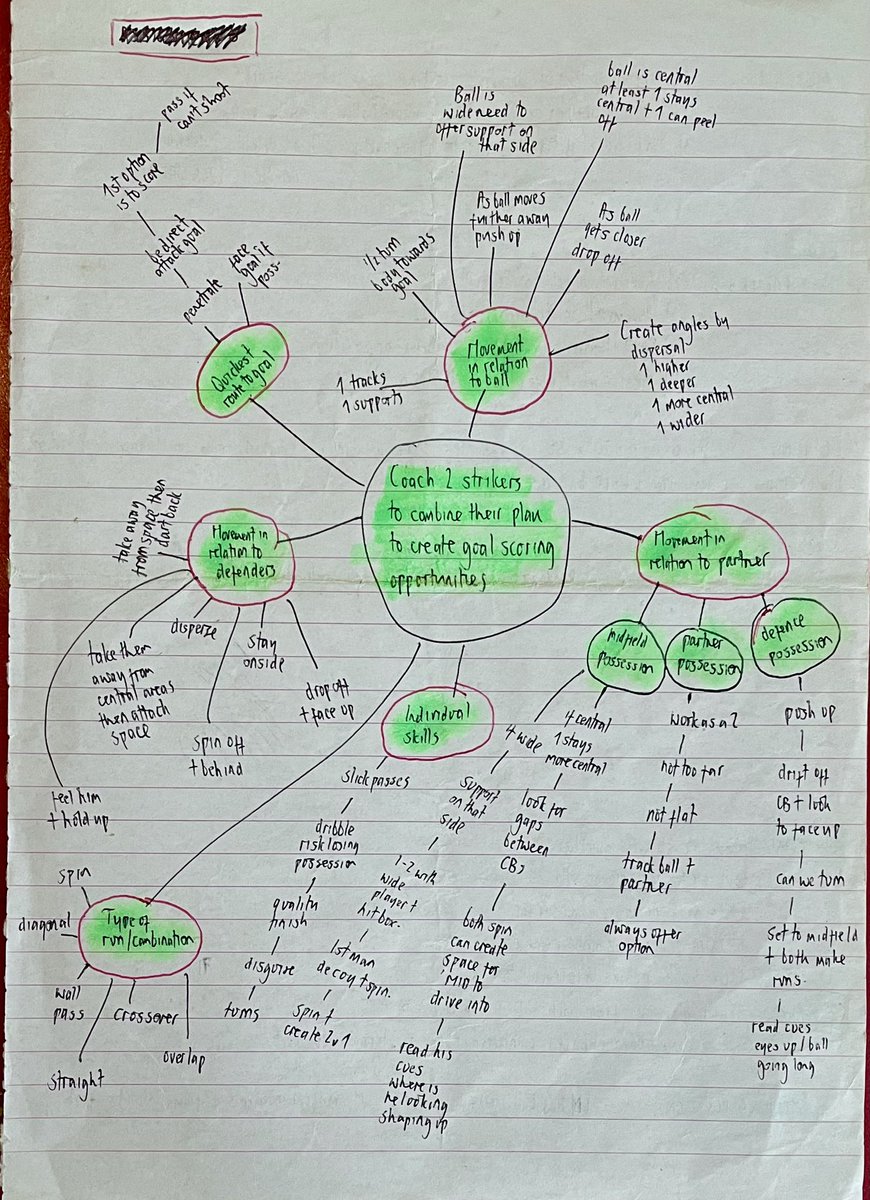 pass if
can't shoot
1st option
is to score
be direct
attack goal
penetrate
face
goal if
poss.
Quickest
route to goal
Ball is
wide need to
offer support on
that side
ball is central
at least 1 stays
central + 1 can peel
off
As ball moves
further away
push up
As ball
gets closer
drop off
1/2 turn
body towards
goal
Movement
in relation
to ball
1 tracks
1 supports
Create angles by
dispersal
1 higher
1 deeper
1 more central
1 wider
Coach 2 strikers
to combine their plan
to create goal scoring
opportunities
take away
from space then
dart back
Movement in
relation to
defenders
take them
away from
central areas
then attach
space
disperse
spin off
+ behind
stay
onside
drop off
+ face up
feel him
+ hold up
Movement in
relation to partner
midfield
possession
partner
possession
defence
possession
4 wide
support
on that
side
1-2 with
wide
player +
hit box.
1st man
decoy + spin.
spin +
create 2v1
4 central
1 stays
more central
look for
gaps
between
CB,
both spin
can create
space for
MID to
drive into
read his
cues
where is
he looking
shaping up
work as a 2
not too far
not flat
track ball +
partner
always offer
option
push up
drift off
CB + look
to face up
can we turn
set to midfield
+ both make
runs.
read cues
eyes up / ball
going long
Individual
skills
slick passes
dribble
risk losing
possession
quality
finish
disguise
turns
Type of
run/combination
spin
diagonal
wall
pass
straight
crossover
overlap